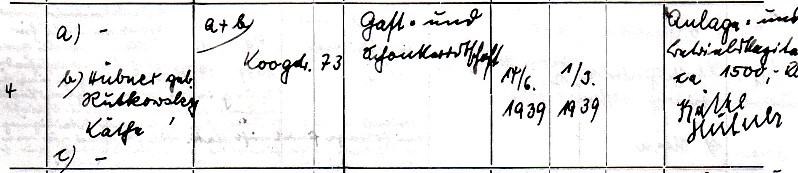 4
a) -
b) Hübner geb.
Rutkowsky,
Käthe
c) -
a + b)
Koogstr. 73
Gast- und
Schankwirtschaft
14/6.
1939
1/3.
1939
Anlage- und
Betriebskapita
ca 1500,-
Käthe
Hübner